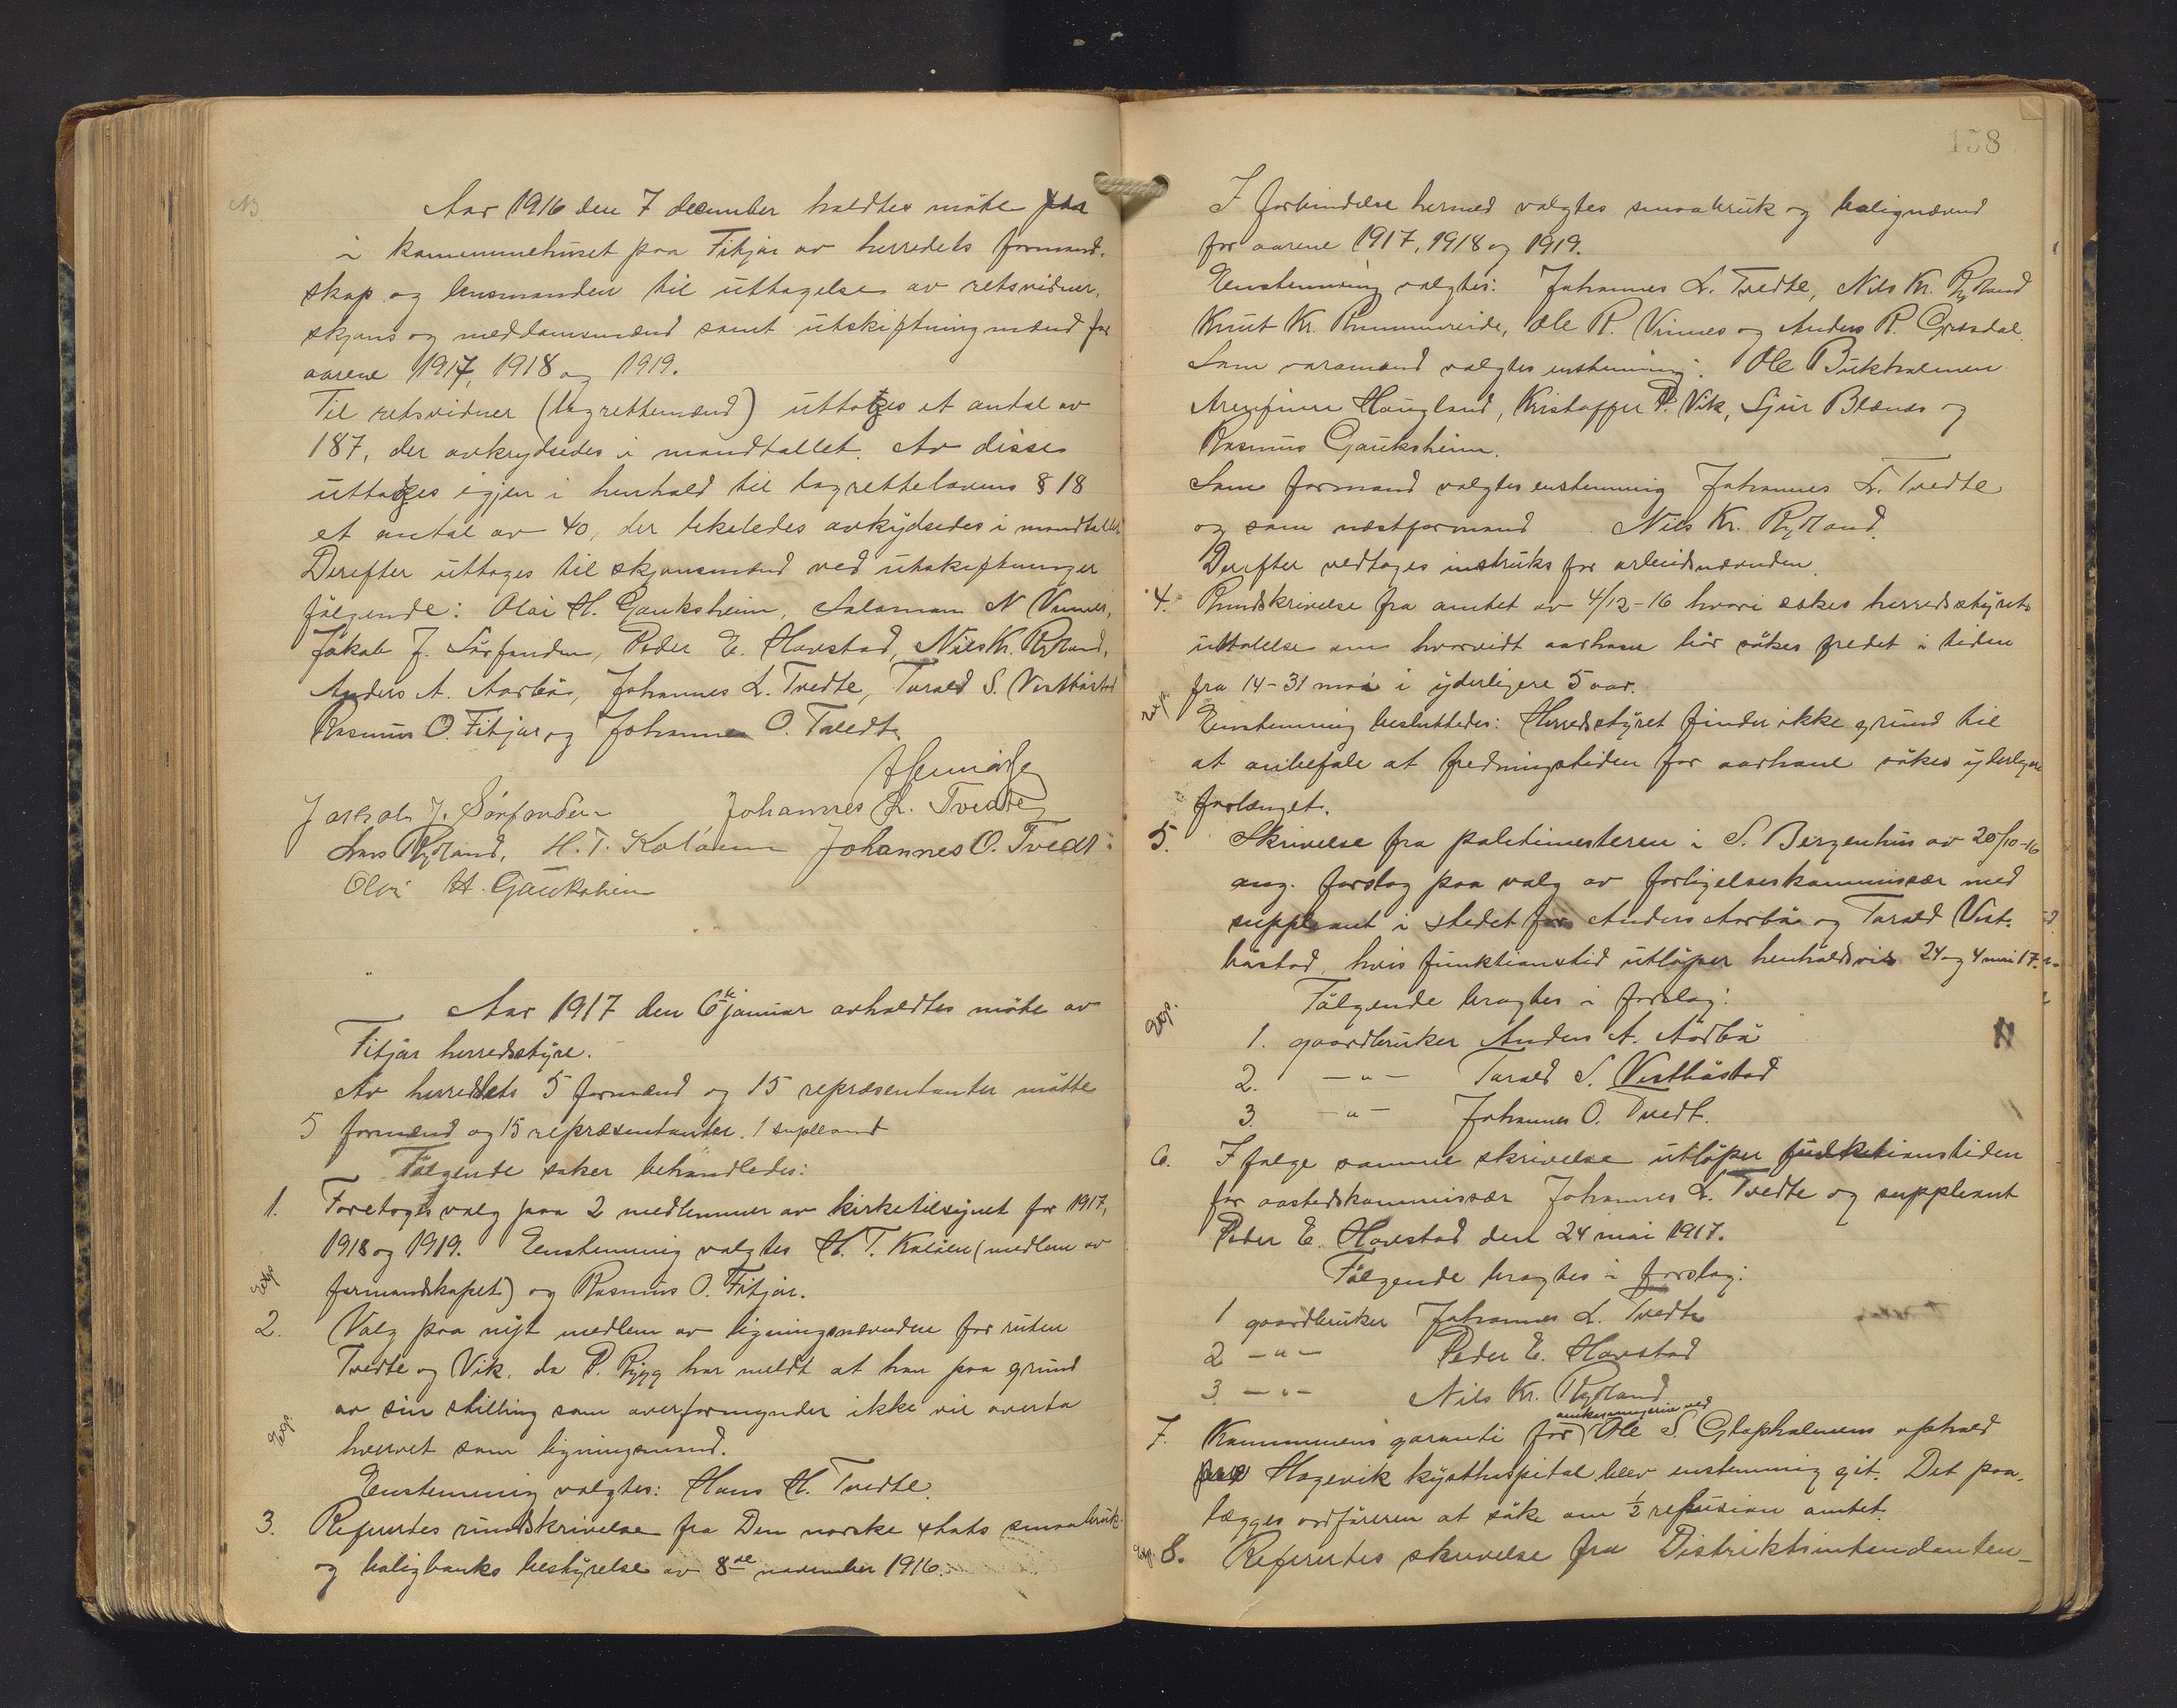 Aar 1916 den 7 december holdtes möte paa
i kommunehuset paa Fitjar av herredets formand-
skap og lensmanden til uttagelse av retsvidner,
skjøns og meddomsmænd samt utskiftningsmænd for
aarene 1917, 1918 og 1919.
Til retsvidner (lagrettemænd) uttoges et antal av
187, der avkrydsedes i mandtallet. Av disse
uttoges igjen i henhold til lagrettelovens § 18
et antal av 40, der likeledes avkrydsedes i mandtallet.
Derefter uttoges til skjønsmænd ved utskiftninger
følgende: Olai H. Gauksheim, Salamon N Vinnes,
Jakob J. Sörfonden, Peder E. Havstad, Nils Kr. Rydland,
Anders A. Aarbö, Johannes L. Tvedte, Tarald S. Vestböstad
Rasmus O. Fitjar og Johannes O. Tvedt.
Jakob J. Sørfonden Johannes L. Tvedte
Lars Rydland, H. T. Kolöen Johannes O. Tvedt
Olai H. Gauksheim
Aar 1917 den 6te januar avholdtes möte av
Fitjar herredsstyre.
Av herredets 5 formænd og 15 repræsentanter mötte
5 formænd og 15 repræsentanter. 1 supleant
Fölgende saker behandledes:
1. Foretoges valg paa 2 medlemmer av kirketilsynet for 1917,
1918 og 1919. Enstemmig valgtes H. T. Kolöen (medlem av
Exp. formandskapet) og Rasmus O. Fitjar.
2. Valg paa nyt medlem av ligningsnævnden for ruten
Tvedte og Vik, da P. Rygg har meldt at han paa grund
av sin stilling som overformynder ikke vil overta
Exp. hvervet som ligningsmand.
Enstemmig valgtes: Hans H. Tvedte.
3. Refertes rundskrivelse fra Den norske stats smaabruk-
og boligbanks bestyrelse av 8de november 1916.
138
I forbindelse hermed valgtes smaabruk og bolignævnd
for aarene 1917, 1918 og 1919.
Enstemmig valgtes: Johannes L. Tvedte, Nils Kr. Rydland
Knut Kr. Rimmereide, Ole R. Vinnes og Anders R. Grisdal.
Som varamænd valgtes enstemmig: Ole Bukholmen
Arenfinn Haugland, Kristoffer P. Vik, Sjur Blænes og
Rasmus Gauksheim.
Som formand valgtes enstemmig Johannes L. Tvedte
og som næstformand Nils Kr. Rydland.
Derefter vedtoges instruks for arbeidsnævnden.
4. Rundskrivelse fra amtet av 4/12-16 hvori søkes herredsstyrets
uttalelse om hvorvidt aarhane bör søkes fredet i tiden
fra 14-31 mai i yderligere 5 aar.
Exp. Enstemmig besluttedes: Herredsstyret finder ikke grund til
at anbefale at fredningstiden for aarhane søkes yderligere
forlænget.
5. Skrivelse fra politimesteren i S. Bergenhus av 20/10-16
ang. forslag paa valg av forligelseskommissær med
suppleant i stedet for Anders Aarbö og Tarald Vest-
böstad, hvis funktionstid utlöper henholdsvis 24 og 4 mai 17.
Exp. Fölgende bragtes i forslag:
1. gaardbruker Anders A. Aarbö
2. —"— Tarald S. Vestböstad
3. —"— Johannes O. Tvedt.
6. Ifølge samme skrivelse utlöper funktionstiden
for aastedskommissær Johannes L. Tvedte og suppleant
Peder E. Havstad den 24 mai 1917.
Fölgende bragtes i forslag:
1 gaardbruker Johannes L. Tvedte
2 —"— Peder E. Havstad
3 —"— Nils Kr. Rydland
7. Kommunens garanti for Ole S. Glopholmens ophold
paa Hagevik kysthospital blev enstemmig git. Det paa-
lægges ordføreren at söke om ½ refusion amtet.
Exp. 8. Refertes skrivelse fra Distriktsintendanten